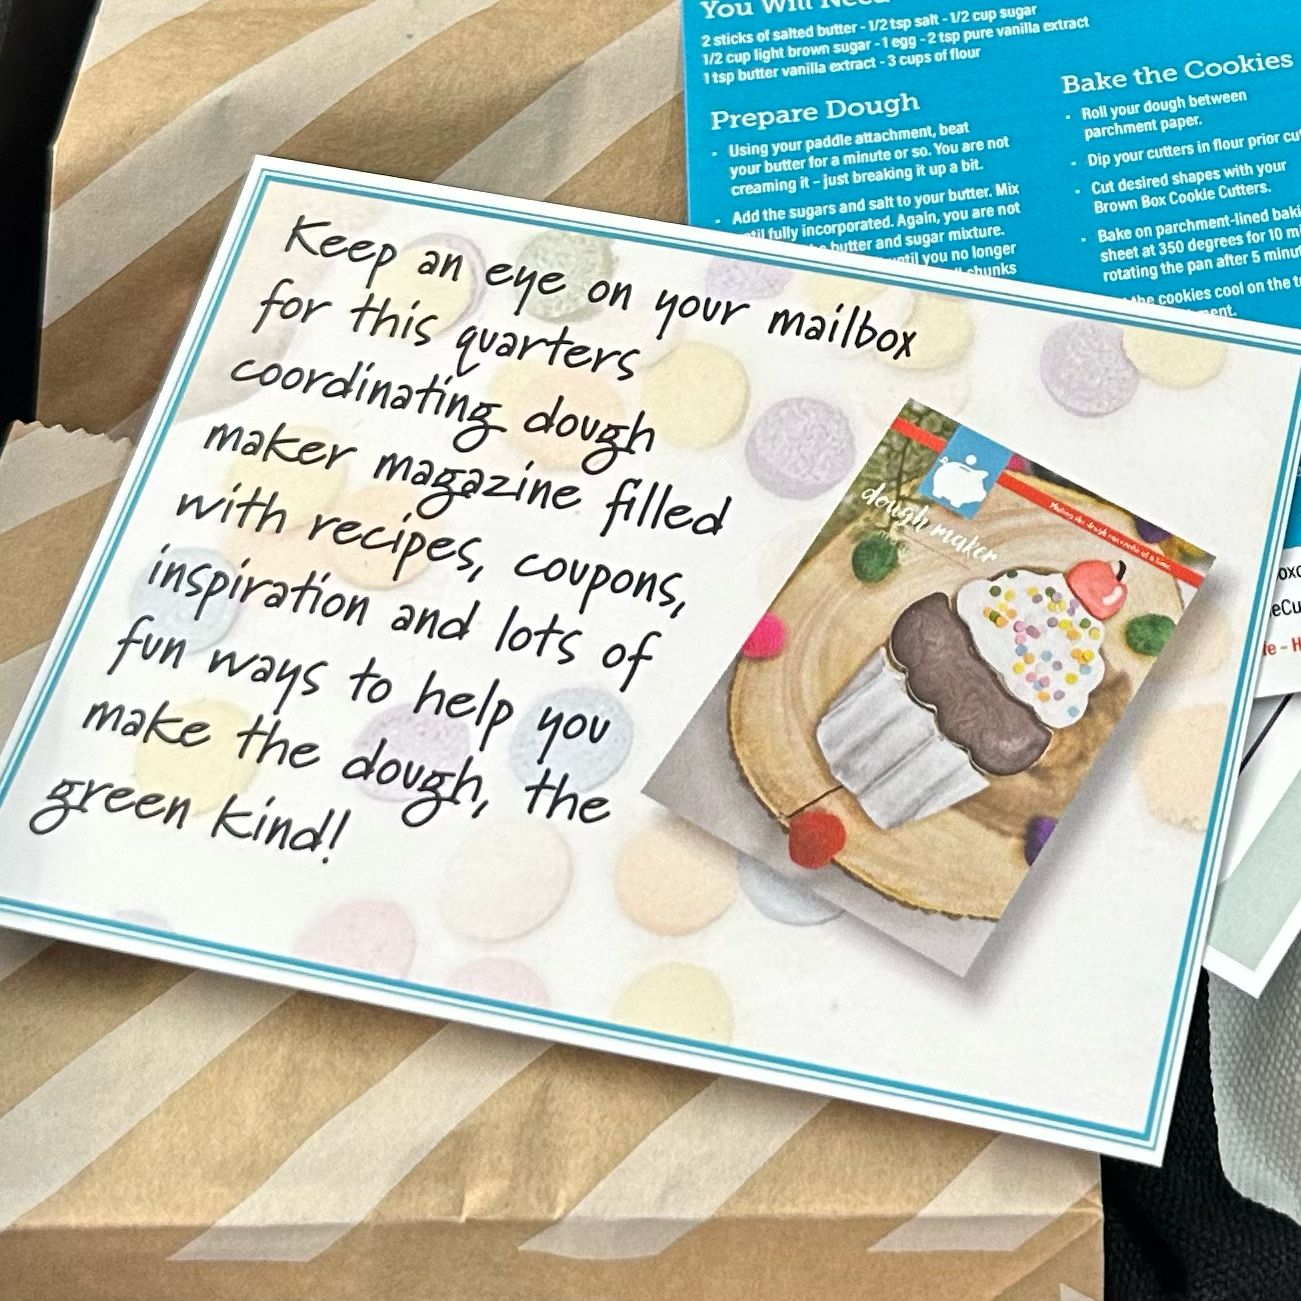 You Will Need
2 sticks of salted butter - 1/2 tsp salt - 1/2 cup sugar
1/2 cup light brown sugar - 1 egg - 2 tsp pure vanilla extract
1 tsp butter vanilla extract - 3 cups of flour
Prepare Dough
• Using your paddle attachment, beat
your butter for a minute or so. You are not
creaming it - just breaking it up a bit.
• Add the sugars and salt to your butter. Mix
fully incorporated. Again, you are not
butter and sugar mixture.
you no longer
chunks
Bake the Cookies
• Roll your dough between
parchment paper.
• Dip your cutters in flour prior
• Cut desired shapes with your
Brown Box Cookie Cutters.
• Bake on parchment-lined
sheet at 350 degrees for 10
rotating the pan after 5
the cookies cool on the
Keep an eye on your mailbox
for this quarters
coordinating dough
maker magazine filled
with recipes, coupons,
inspiration and lots of
fun ways to help you
make the dough, the
green kind!
dough maker